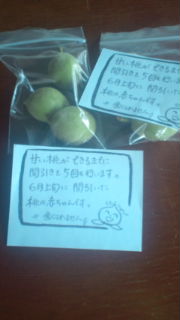 甘い桃ができるまでに
間引きを5回行います。
6月上旬に間引いた
桃の赤ちゃんです。
※食べられません
甘い桃ができるまでに
間引きを5回行います。
6月上旬に間引いた
桃の赤ちゃんです。
※食べられません